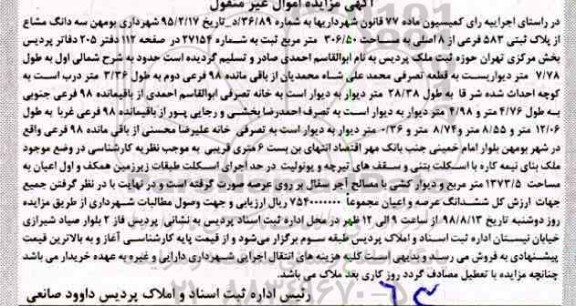 آگهی مزایده اموال غیر منقول
در راستای اجراییه رای کمیسیون ماده ۷۷ قانون شهرداریها به شماره ۳۶/۸۹/د_تاریخ ۹۵/۲/۱۷ شهرداری بومهن سه دانگ مشاع
از پلاک ثبتی ۵۸۳ فرعی از ۸ اصلی به مساحت ۳۰۶/۵۰ متر مربع ثبت به شماره ۲۷۱۵۴ در صفحه ۱۱۲ دفتر ۲۰۵ دفاتر پردیس
بخش مرکزی تهران حوزه ثبت ملک پردیس به نام ابوالقاسم احمدی صادر و تسلیم گردیده است حدود به شرح شمالی اول به طول
۷/۷۸ متر دیواریست به قطعه تصرفی محمد علی شاه محمدیان از باقی مانده ۹۸ فرعی دوم به طول ۳/۳۶ متر درب است به
کوچه احداث شده شرقا به طول ۲۸/۳۸ متر دیوار به دیوار است به خانه تصرفی ابوالقاسم احمدی از باقیمانده ۹۸ فرعی جنوبی
به طول ۴/۷۶ متر و ۴/۹۸ متر دیوار به دیوار است به تصرف احمدرضا بخشی و رجایی پور از باقیمانده ۹۸ فرعی غربا به طول
۱۲/۰۶ متر و ۸/۵۵ متر و ۸/۷۴ متر و ۰/۳۶ متر دیوار به دیوار است به تصرفی خانه علیرضا محسنی از باقی مانده ۹۸ فرعی واقع
در شهر بومهن بلوار امام خمینی جنب بانک مهر اقتصاد انتهای بن بست ۶ متری قریبی به موجب نظریه کارشناسی در وضع موجود
ملک بنای نیمه کاره با اسکلت بتنی و سقف های تیرچه و یونولیت در حد اجرای اسکلت طبقات زیرزمین همکف و اول اعیان به
مساحت ۱۳۷۳/۵ متر مربع و دیوار کشی با مصالح آجر سفال بر روی عرصه صورت گرفته است و در نهایت با در نظر گرفتن جمیع
جهات ارزش کل ششدانگ عرصه و اعیان مجموعاً ۷۵۴۰۰۰۰۰۰۰ ریال ارزیابی و جهت وصول مطالبات شهرداری از طریق مزایده
روز دوشنبه تاریخ ۹۸/۸/۱۳ از ساعت ۹ الی ۱۲ ظهر در محل اداره ثبت اسناد پردیس به نشانی پردیس فاز ۲ بلوار صیاد شیرازی
خیابان نیستان اداره ثبت اسناد و املاک پردیس طبقه سوم برگزار می‌شود و از قیمت پایه کارشناسی آغاز و به بالاترین قیمت
پیشنهادی به فروش می رسد و بدیهی است کلیه هزینه های انتقال اجرایی شهرداری دارایی و غیره به عهده خریدار می باشد
چنانچه مزایده با تعطیل مصادف گردد روز کاری بعد ملاک می باشد.
رئیس اداره ثبت اسناد و املاک پردیس داوود صانعی